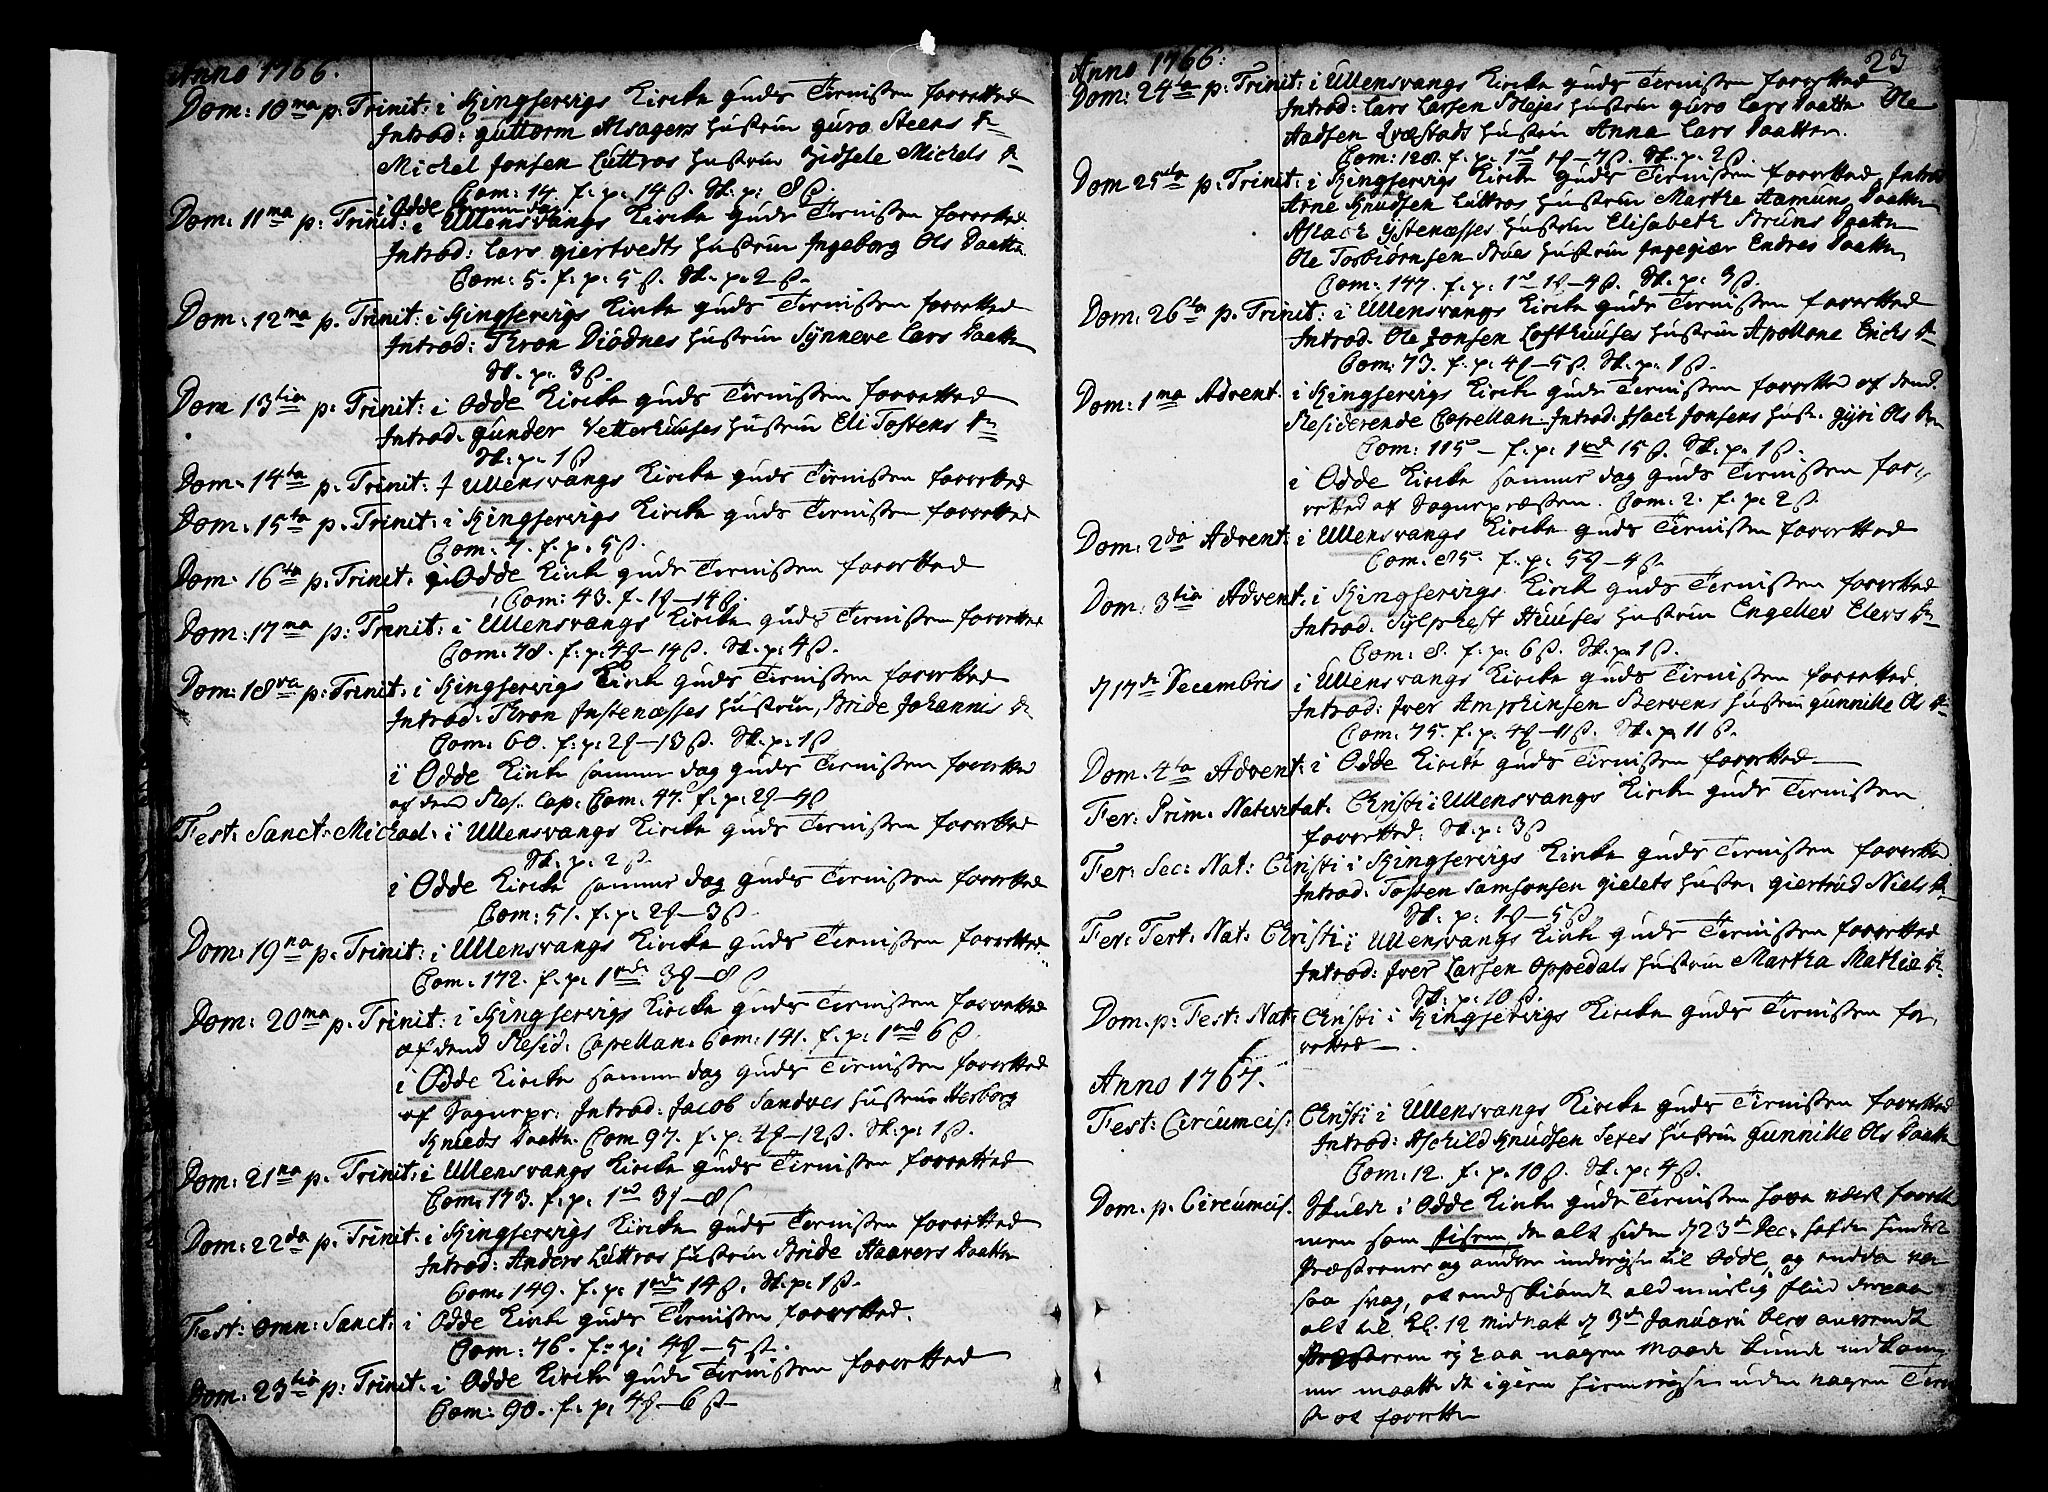 Anno 1766.
Dom: 10ma p: Trinit: i Kingservigs Kircke guds Tienisten forretted
Introd: Guttorm Alsagers hustrue Guro Steens D.
Michel Jonsen Luttros hustrue Sidsele Michels D.
Com: 14. f. p: 14 ß. Sk: p: 8 ß.
i Odde
Dom: 11ma p: Trinit: i Ullensvangs Kircke guds Tienisten forretted
Introd: Lars Giertvedts hustrue Ingeborg Ols Daatter
Com: 5. f: p: 5 ß. Sk. p: 2 ß.
Dom: 12ma p. Trinit: i Kingservigs Kircke guds Tienisten forretted
Introd: Thron Diödnes hustrue Synneve Lars Daatter
Sk. p: 3 ß.
Dom 13tia p: Trinit: i Odde Kircke guds Tienisten forretted
Introd. Gunder Vetterhuuses hustrue Eli Tostens D.
Sk. p. 1 ß
Dom. 14ta p: Trinit: i Ullensvangs Kircke guds Tienisten forretted
Dom: 15ta p: Trinit: i Kingservigs Kircke guds Tienisten forretted
Com: 7. f. p. 5 ß.
Dom: 16ta p: Trinit: i Odde Kircke guds Tienisten forretted
Com: 43. f. 1 – 14 ß.
Dom: 17ma p: Trinit: i Ullensvangs Kircke guds Tienisten forrettet
Com: 78. f. p: 4 – 14 ß. Sk. p: 4 ß.
Dom: 18va p: Trinit: i Kingservigs Kircke guds Tienisten forretted
Introd: Thron Instenæsses hustrue, Bride Johannis D.
Com: 60. f: p: 2 – 13 ß. Sk: p: 1 ß
i Odde Kircke samme dag guds Tienisten forretted
af dend Res. Cap: Com: 47. f: p: 2 – 4 ß
Fest: Sanct: Michael: i Ullensvangs Kircke guds Tienisten forretted
Sk. p. 2 ß.
i Odde Kircke samme dag guds Tienisten forrettet
Com: 51. f. p: 2 – 3 ß.
Dom: 19na p: Trinit: i Ullensvangs Kircke guds Tienisten forrettet
Com: 172. f. p: 1 rd: 3 – 8 ß
Dom: 20ma p: Trinit: i Kingservigs Kircke guds Tienisten forrettet
af dend Resid: Capellan. Com: 141. f. p: 1 rd 6 ß.
i Odde Kircke samme dag guds Tienisten forrettet
af Sognepr: Introd: Jacob Sandves hustrue Herborg
Knuds Daatter. Com 97. f. p: 4 – 12 ß. Sk: p: 1 ß.
Dom: 21na p. Trinit: i Ullensvangs Kircke guds Tienisten forrettet
Com: 173. f. p: 1 rd 3 – 8 ß
Dom: 22da p: Trinit: i Kingservigs Kircke guds Tienisten forrettet
Introd: Anders Luttros hustrue Bride Haavers Daatter
Com: 149. f. p: 1 rd 14 ß. Sk: p: 1 ß.
Fest: Omn: Sanct: i Odde Kircke guds Tienisten forrettet.
Com: 76. f: p: 4 – 5 ß.
Dom: 23tia p: Trinit: i Odde Kircke guds Tienisten forrettet
Com: 90. f. p: 4 – 6 ß
23
Anno 1766:
Dom: 24ta p: Trinit: i Ullensvangs Kircke guds Tienisten forrettet
Introd: Lars Larsen Blejes hustrue Guro Lars Daatter Ole
Aadsen Qvæstads hustrue Anna Lars Daatter.
Com: 128. f. p. 1 rd 1 – 7 ß. Sk. p: 2 ß.
Dom 25ta p: Trinit: i Kingservigs Kircke guds Tienisten forrettet, Introd
Arne Knudsen Luttros hustrue Martha Aamuns Daatter
Aslack Ystenæsses hustrue Elisabeth Bruns Daatter
Ole Torbiörnsen hustrue Ingegiær Endres Daatter
Com: 147. f. p: 1 rd 1 – 4 ß. Sk. p: 3 ß.
Dom: 26ta p: Trinit: i Ullensvangs Kircke guds Tienisten forrettet
Introd. Ole Jonsen Lofthuuses hustrue Apollone Erichs D.
Com: 73. f. p: 4 – 5 ß. Sk: p: 1 ß.
Dom: 1ma Advent. i Kingservigs Kircke guds Tienisten forrettet af dend
Residerende Capellan. Introd. Isack Jonsens hust. Gyri Ols D.
Com: 115 – f: p: 1 rd 15 ß. Sk: p: 1 ß.
i Odde Kircke samme dag guds Tienisten for-
rettet af Sognepræsten. Com: 2. f. p: 2 ß.
Dom: 2da Advent: i Ullensvangs Kircke guds Tienisten forrettet
Com. 85. f. p: 5 – 4 ß.
Dom: 3tia Advent: i Kingservigs Kircke guds Tienisten forrettet
Introd. Sylphest Huuses hustrue Engellev Elevs D.
Com: 8. f. p: 6 ß. Sk: p. 1 ß.
d 17de Decembris i Ullensvangs Kircke guds Tienisten forrettet.
Introd: Iver Amphinsen Bervens hustrue Gunnille Ols D.
Com: 75. f. p: 4 – 11 ß. Sk: p. 11 ß.
Dom. 4ta Advent: i Odde Kircke guds Tienisten forrettet
Fer: Prim. Nativitat: Christi i Ullensvangs Kircke guds Tienisten
forrettet: Sk: p: 3 ß
Fer: Sec: Nat: Christi i Kingservigs Kircke guds Tienisten forrettet
Introd. Tosten Samsonsen Gielets hustr. Giertrud Niels D.
Sk: p: 1 – 5 ß.
Fer: Tert: Nat: Christi i Ullensvangs Kircke guds Tienisten forrettet
Introd: Iver Larsen Oppedals hustrue Martha Mathie D.
Sk: p: 10 ß.
Dom. p: Fest: Nat: Christi i Kingservigs Kircke guds Tienisten for-
rettet –
Anno 1767.
Fest: Circumcis: Christi i Ullensvangs Kircke guds Tienisten forrettet
Introd: Aschild Knudsen Sexes hustrue Gunnille Ols Daatter
Com: 12. f. p. 10 ß. Sk: p: 4 ß.
Dom. p. Circumcis. Skulde i Odde Kircke guds Tienisten have været forrettet
men som Iisen, der alt siden d 23de Dec: hafde hindret
Præstener og andre indrejse til Odde, og endda var
saa svag, at endskiøndt ald muelig fliid derpaa
alt til Kl. 12 midnat d 3de Januarii blev anvendt
Præsten ey paa nogen Maade kunde indkom-
me maatte de igien hiemrejse uden nogen Tieni-
ste at forrette